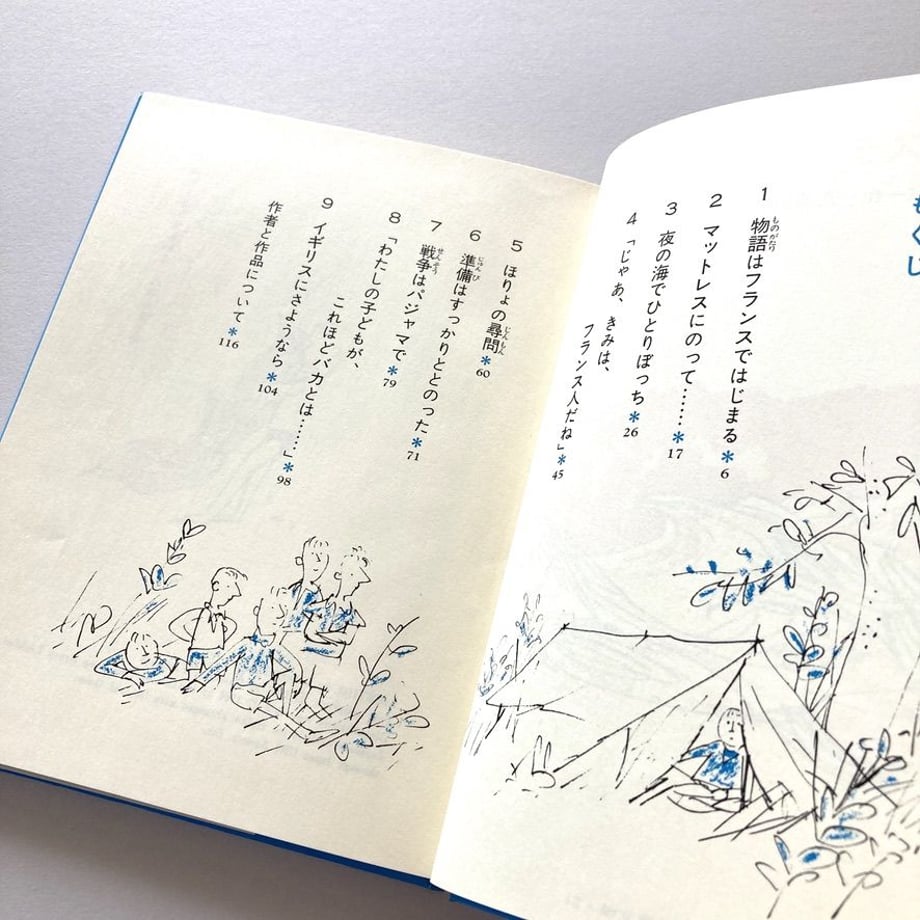 もくじ
ものがたり
1 物語はフランスではじまる*6
2 マットレスにのって……*17
3 夜の海でひとりぼっち*26
4 「じゃあ、きみは、
フランス人だね」*45
じんもん
5 ほりょの尋問*60
じゅんび
6 準備はすっかりととのった*71
せんそう
7 戦争はパジャマで*79
8 「わたしの子どもが、
これほどバカとは……」*98
9 イギリスにさようなら*104
作者と作品について*116